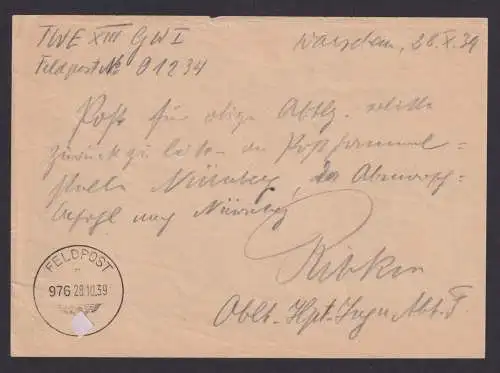 TWE XIII GW I
Warschau, 28.X.39
Feldpost № 01234
Post für obige Abtlg. bitte
zurück zu leiten an Postsammel=
stelle Nürnberg, da Abmarsch=
befehl nach Nürnberg
Oblt. Hpt. Ingr. Abt. F.
FELDPOST
976 28.10.39